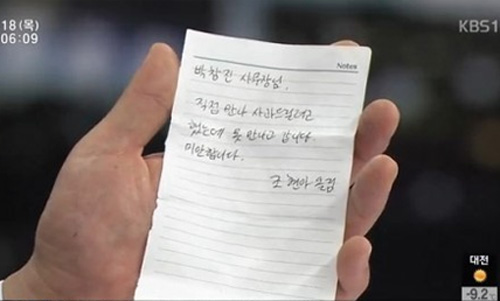 18(목)
06:09
KBS1
Notes
박창진 사무장님,
직접 만나 사과드릴려고
했는데 못 만나고 갑니다.
미안합니다.
조현아 올림
대전
-9.2